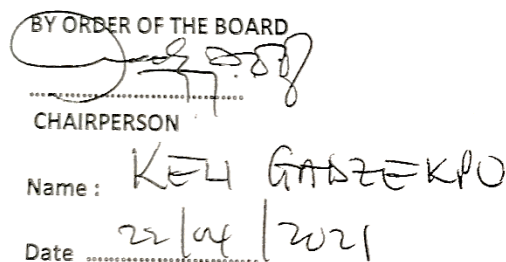 BY ORDER OF THE BOARD
CHAIRPERSON
Name : KELI GADZEKPO
Date 22/04/2021